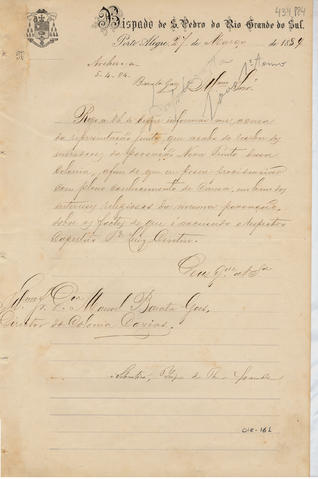 434 884
Bispado de S. Pedro do Rio Grande do Sul.
Porto Alegre, 27 de Março de 1884
Archive-se
5.4.84.
Barata Goes
Rogo a V. S.ª digne informar-me, acerca
da representação junta que acabo de receber de
moradores da povoação Nova Trento nessa
Colonia, afim de que eu possa providenciar
com pleno conhecimento de causa, em bem dos
interesses religiosos da mesma povoação,
sobre os factos de que é accusado o respectivo
Capellão P.e Luiz
Deus G.de a V. S.ª
Ill.mo S.r Dr. Manoel Barata Goes
Director da Colonia Caxias.
Sebastião, Bispo do Rio Grande